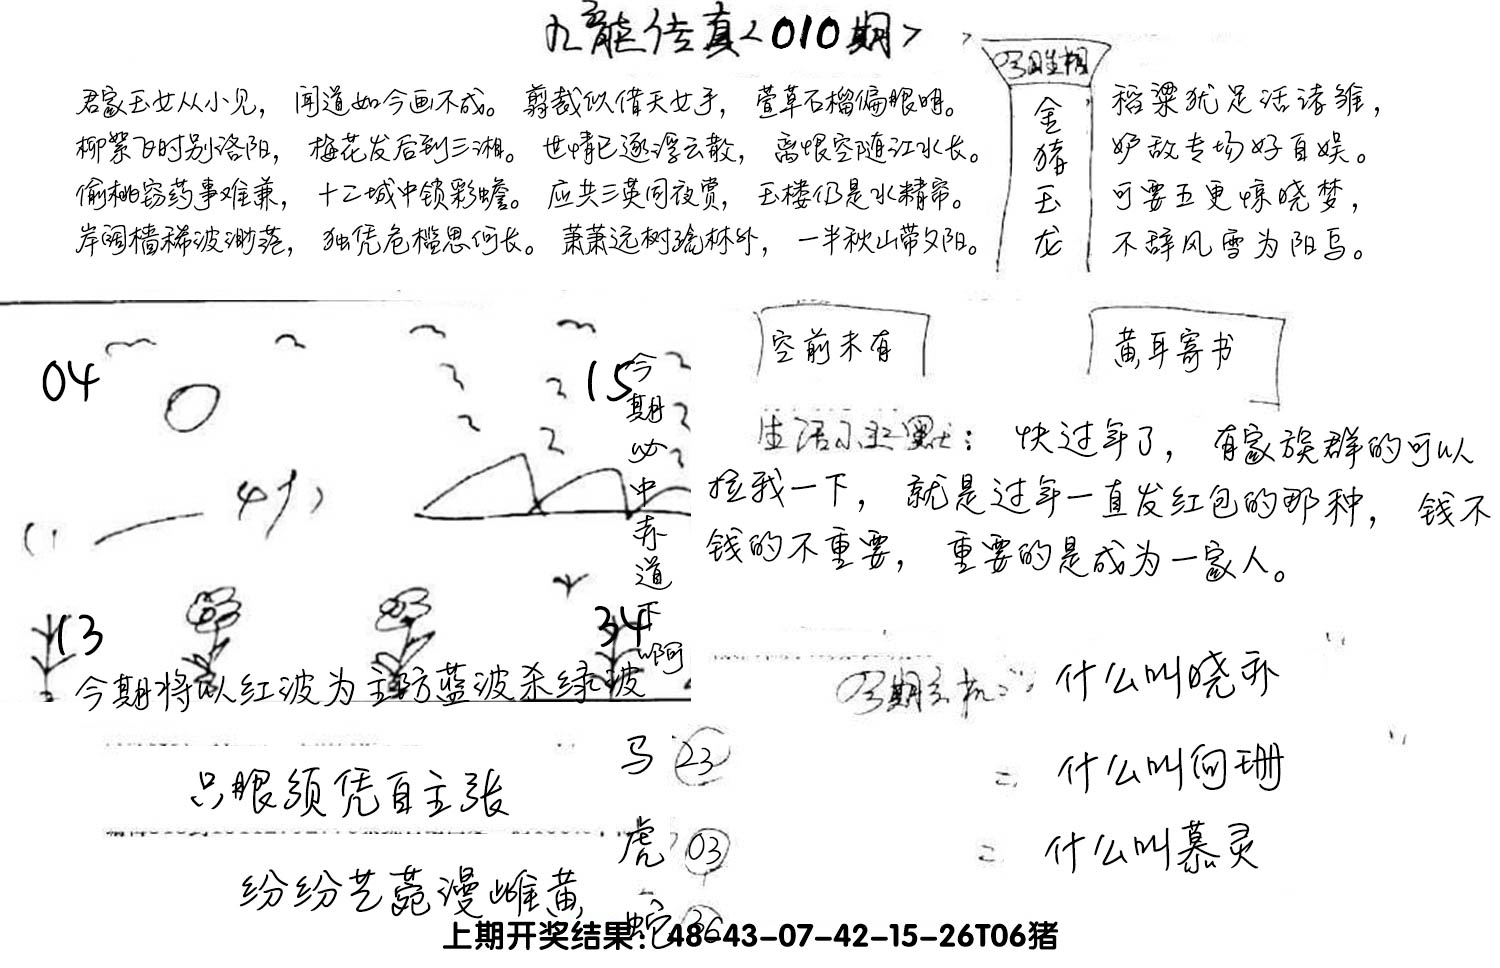 九龙传真<010期>
君家玉女从小见，闻道如今画不成。剪裁似借天女手，萱草石榴偏眼明。
柳絮飞时别洛阳，梅花发后到三湘。世情已逐浮云散，离恨空随江水长。
偷桃窃药事难兼，十二城中锁彩蟾。应共三英同夜赏，玉楼仍是水精帘。
岸阔樯稀波渺茫，独凭危槛思何长。萧萧远树疏林外，一半秋山带夕阳。
今期生相
金猪玉龙
稻粱犹足活诸雏，
妒敌专场好自娱。
可要五更惊晓梦，
不辞风雪为阳乌。
04
15
13
34
今期必中赤道下啊
今期将以红波为主防蓝波杀绿波
空前未有
黄耳寄书
生活小幽默：快过年了，有家族群的可以
拉我一下，就是过年一直发红包的那种，钱不
钱的不重要，重要的是成为一家人。
今期玄机：什么叫晓乔
= 什么叫向珊
= 什么叫慕灵
只眼须凭自主张
纷纷艺苑漫雌黄
马 23
虎 03
蛇 36
上期开奖结果：48-43-07-42-15-26T06猪